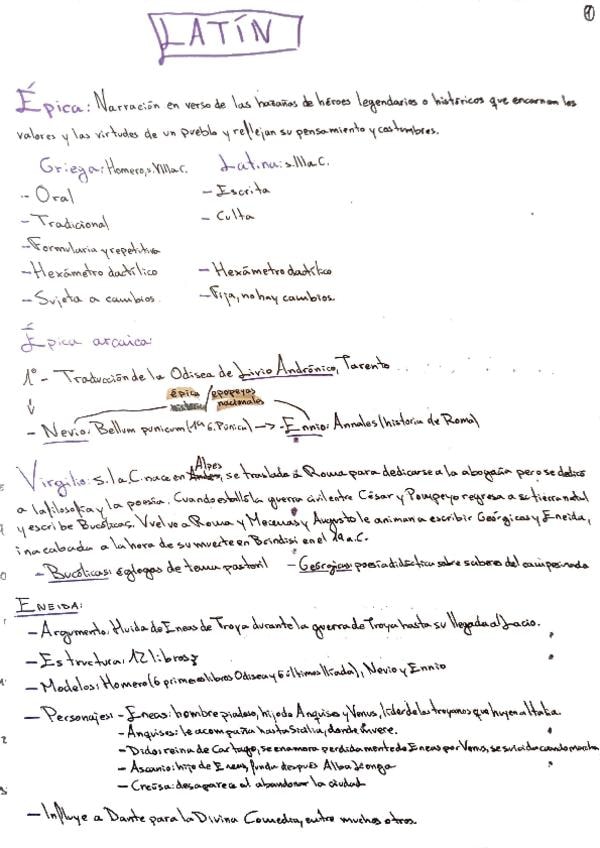 1
LATÍN
Épica: Narración en verso de las hazañas de héroes legendarios o históricos que encarnan los
valores y las virtudes de un pueblo y reflejan su pensamiento y costumbres.
Griega: Homero, s. VIII a.C. Latina: s. III a.C.
- Oral - Escrita
- Tradicional - Culta
- Formularia y repetitiva
- Hexámetro dactílico - Hexámetro dactílico
- Sujeta a cambios. - Fija, no hay cambios.
Épica arcaica:
1º - Traducción de la Odisea de Livio Andrónico, Tarento
épica / epopeyas
nacionales
- Nevio: Bellum punicum (1ª G. Púnica) → - Ennio: Annales (historia de Roma)
Alpes
Virgilio: s. I a.C. nace en Andes, se traslada a Roma para dedicarse a la abogacía pero se dedica
a la filosofía y la poesía. Cuando estalló la guerra civil entre César y Pompeyo regresa a su tierra natal
y escribe Bucólicas. Vuelve a Roma y Mecenas y Augusto le animan a escribir Geórgicas y Eneida,
inacabada a la hora de su muerte en Brindisi en el 19 a.C.
- Bucólicas: églogas de tema pastoril - Geórgicas: poesía didáctica sobre saberes del campesinado
ENEIDA:
- Argumento: Huida de Eneas de Troya durante la guerra de Troya hasta su llegada al Lacio.
- Estructura: 12 libros
- Modelos: Homero (6 primeros libros Odisea y 6 últimos Ilíada), Nevio y Ennio
- Personajes: - Eneas: hombre piadoso, hijo de Anquises y Venus, líder de los troyanos que huyen a Italia.
- Anquises: le acompaña hasta Sicilia, donde muere.
- Dido: reina de Cartago, se enamora perdidamente de Eneas por Venus, se suicida cuando marcha
- Ascanio: hijo de Eneas, funda después Alba Longa
- Creúsa: desaparece al abandonar la ciudad
- Influye a Dante para la Divina Comedia, entre muchos otros.